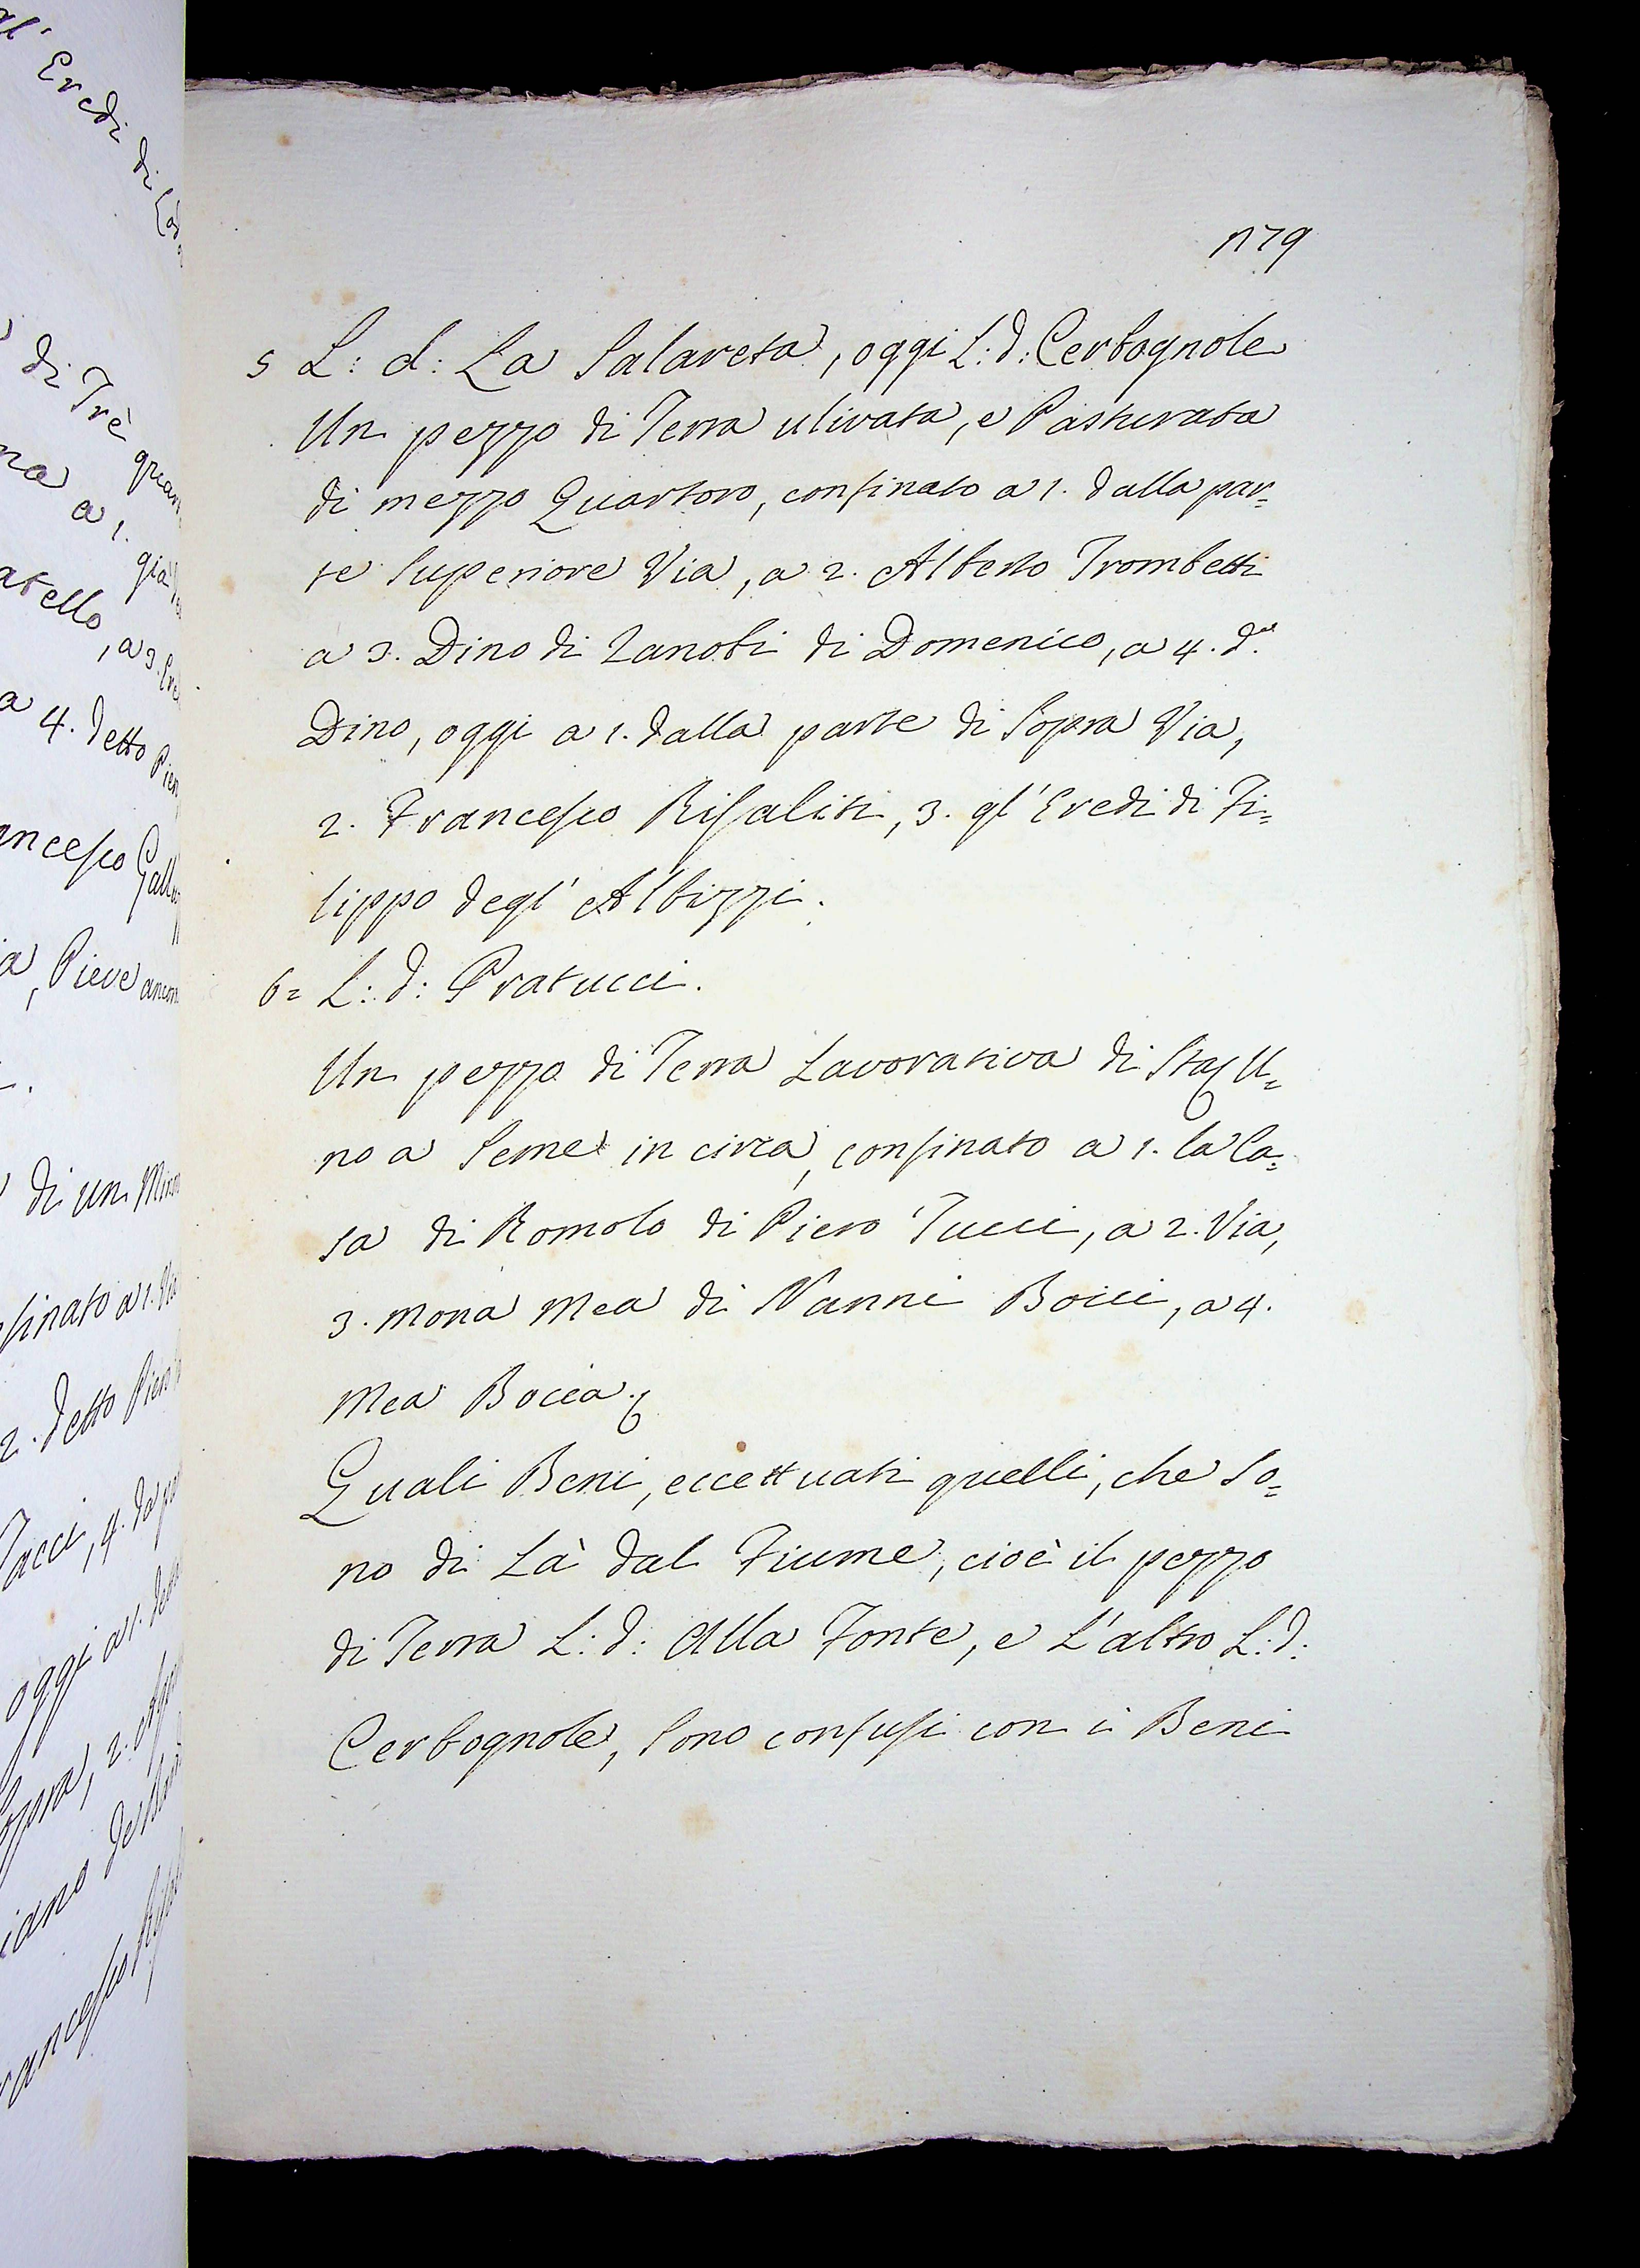 gl' Eredi di
di Trè quar
na a 1. già
atello, a 3. Ere
a 4. detto Pier
ancesco Gall
a, Pieve ancor
di un Mi
finato a 1. Via
2. detto Piero
Tacci, 4. da p
oggi a 1. de
Sopra, 2.
iano del
rancesco
1179
5 L: d: La Salareta, oggi L: d: Cerbognole
Un pezzo di Terra ulivata, e Pasturata
di mezzo Quartoro, confinato a 1. dalla par=
te Superiore Via, a 2. Alberto Trombetti
a 3. Dino di Zanobi di Domenico, a 4. d.o
Dino, oggi a 1. dalla parte di Sopra Via,
2. Francesco Risaliti, 3. gl' Eredi di Fi=
lippo degl' Albizzi.
6= L: d: Pratucci.
Un pezzo di Terra Lavorativa di Staj U=
no a Seme in circa, confinato a 1. la Ca=
sa di Romolo di Piero Tucci, a 2. Via,
3. Mona Mea di Nanni Bocci, a 4.
Mea Boccia.
Quali Beni, eccettuati quelli, che So=
no di Là dal Fiume, cioè il pezzo
di Terra L: d: Alla Fonte, e L'altro L: d:
Cerbognole, Sono confusi con i Beni